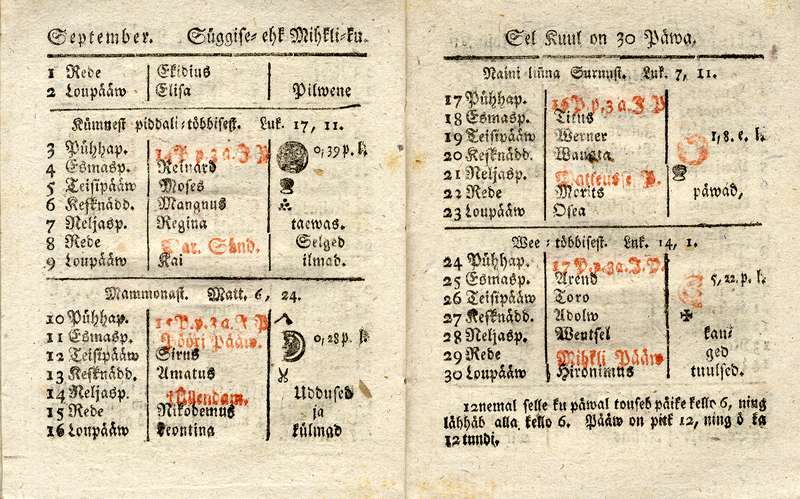 September. Süggise- ehk Mihkli-ku.
1 Rede Ekidius
2 Loupääw Elisa Pilwene
Kümnest piddali-többisest. Luk. 17, 11.
3 Pühhap. 14 P. p. 3 a. J. P 0, 39 p. l.
4 Esmasp. Reinard
5 Teisipääw Moses
6 Kesknädd. Mangnus
7 Neljasp. Regina taewas.
8 Rede Mar. Sünd. Selged
9 Loupääw Kai ilmad.
Mammonast. Matt. 6, 24.
10 Pühhap. 15 P. p. 3 a. J. P
11 Esmasp. Pööri Pääw. 0, 28 p. l.
12 Teisipääw Sirus
13 Kesknädd. Amatus
14 Neljasp. Uddused
15 Rede Nikodemus ja
16 Loupääw Leontina külmad
Sel Kuul on 30 Päwa.
Naini linna Surnust. Luk. 7, 11.
17 Pühhap. 16 P. p. 3 a. J. P
18 Esmasp. Titus
19 Teisipääw Werner 1, 8. e. l.
20 Kesknädd.
21 Neljasp. Matteusse P.
22 Rede Morits päwad,
23 Loupääw Osea
Wee-többisest. Luk. 14, 1.
24 Pühhap. 17 P. p. 3 a. J. P.
25 Esmasp. Arend 5, 22. p. l.
26 Teisipääw Toro
27 Kesknädd. Adolw
28 Neljasp. Wentsel kan-
29 Rede Mihkli Pääw ged
30 Loupääw Hironimus tuulsed.
12nemal selle ku päwal touseb päike kello 6, ning
lähhäb alla kello 6. Pääw on pitk 12, ning ö ka
12 tundi.